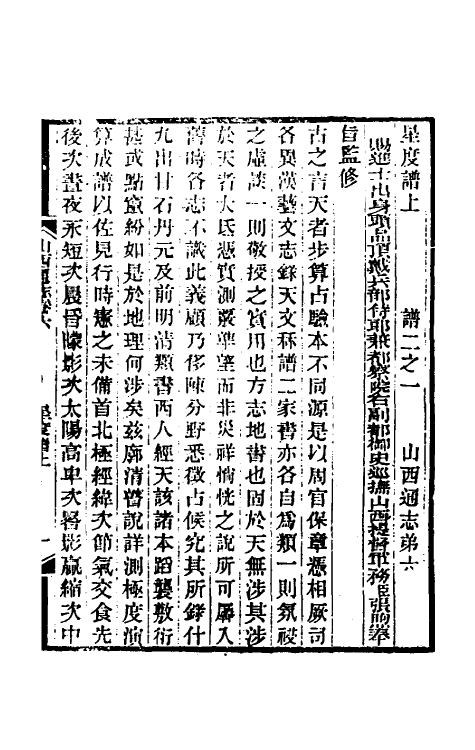 星度譜上　譜二之一　山西通志弟六
賜進士出身頭品頂戴兵部侍郎兼都察院右副都御史巡撫山西提督軍務臣張煦奉
旨監修
古之言天者步算占驗本不同源是以周官保章馮相厥司
各異漢藝文志錄天文秝譜二家書亦各自為類一則氛祲
之虛談一則敬授之實用也方志地書也固於天無涉其涉
於天者大氐憑實測叢準望而非災祥惝恍之說所可羼入
舊時各志不識此義顧乃侈陳分野悉徵占候究其所錄什
九出甘石丹元及前明清類書西人經天該諸本蹈襲敷衍
甚或點竄紛如是於地理何涉矣茲廓清瞽說詳測極度演
算成譜以佐見行時憲之未備首北極經緯次節氣交食先
後次晝夜永短次晨昏矇影次太陽高卑次晷影贏縮次中
山西通志卷六　星度譜上　一